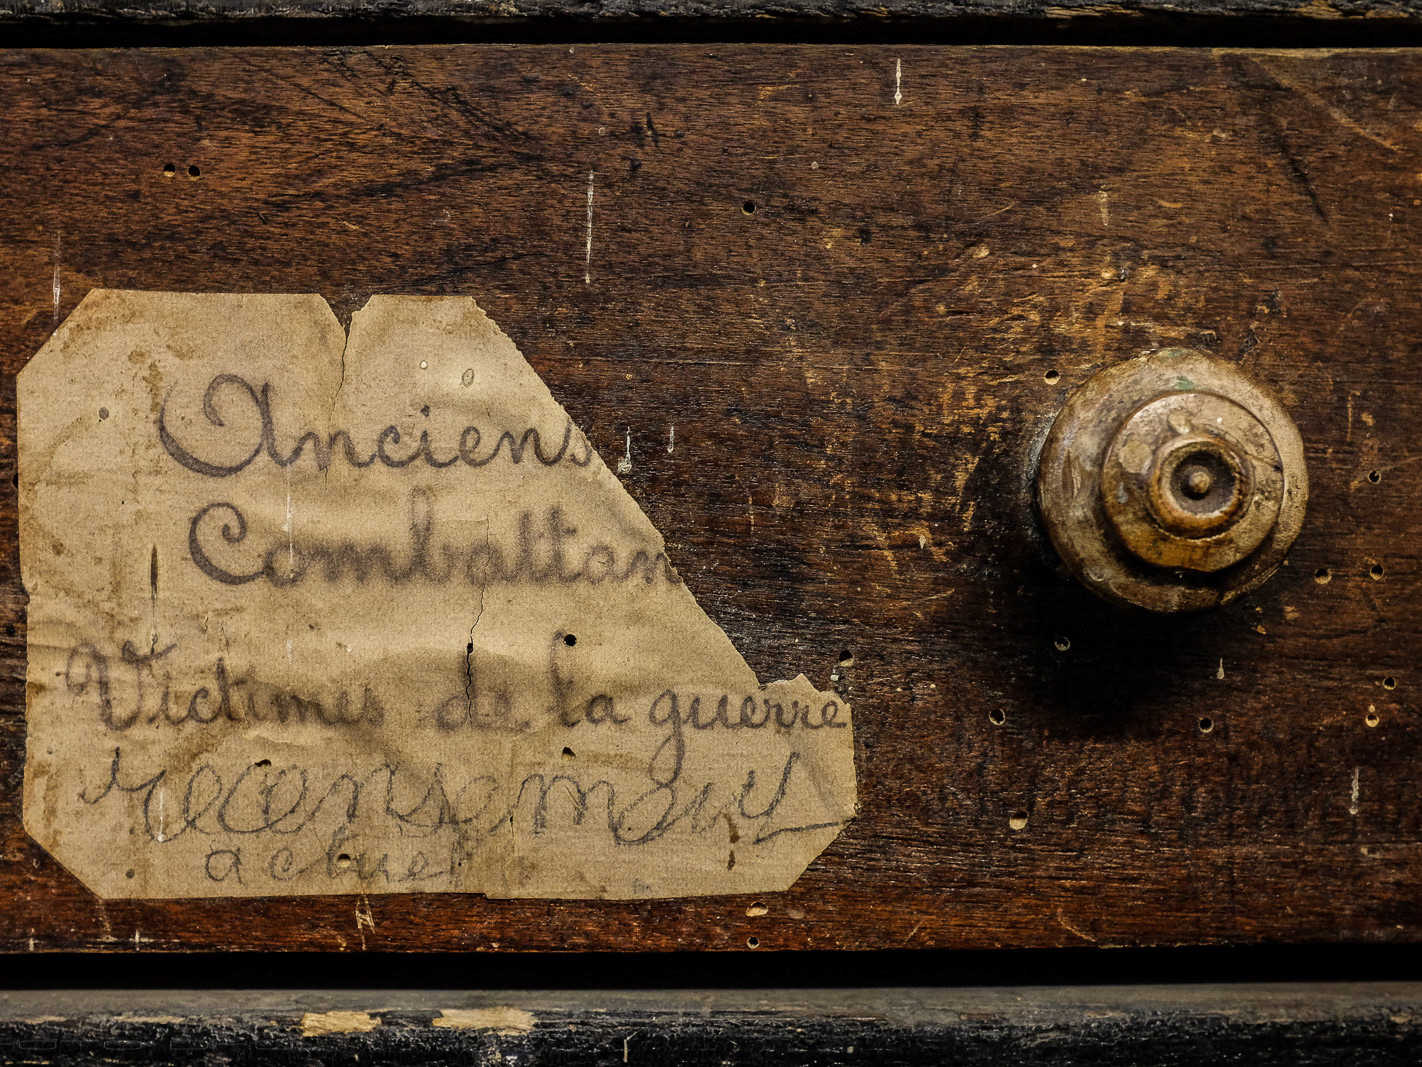 Anciens
Combattan
Victimes de la guerre
recensement
actuel